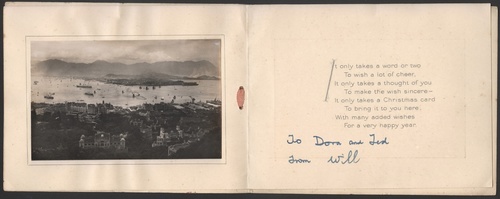 It only takes a word or two
To wish a lot of cheer,
It only takes a thought of you
To make the wish sincere—
It only takes a Christmas card
To bring it to you here,
With many added wishes
For a very happy year.
To Dora and Ted
From Will